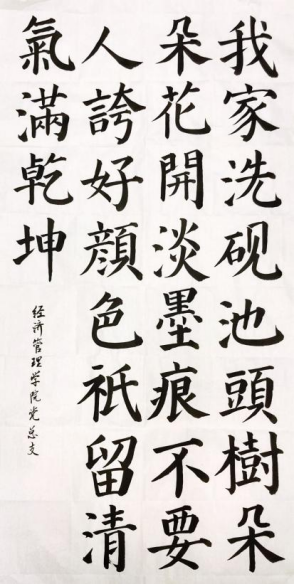 我家洗砚池頭樹朵
朵花開淡墨痕不要
人誇好顔色祇留清
氣滿乾坤
经济管理学院党总支